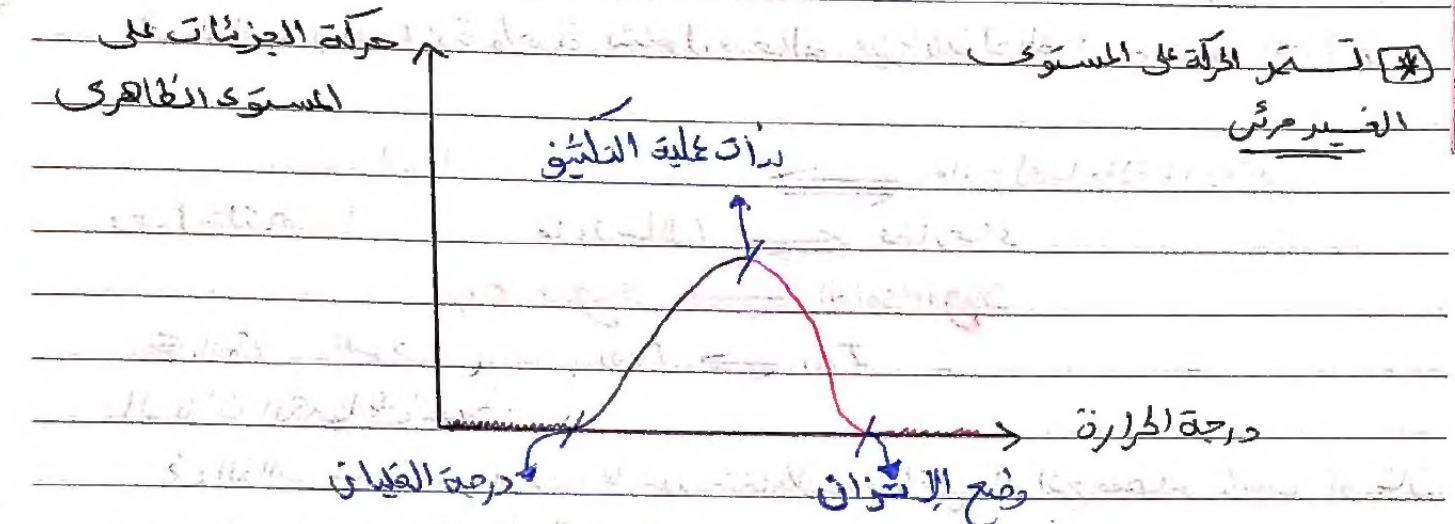 [*] تستمر الحركة على المستوى
الغير مرئى
حركة الجزيئات على
المستوى الظاهرى
بدأت عملية التكثيف
درجة الحرارة
درجة الغليان
وضع الإتزان